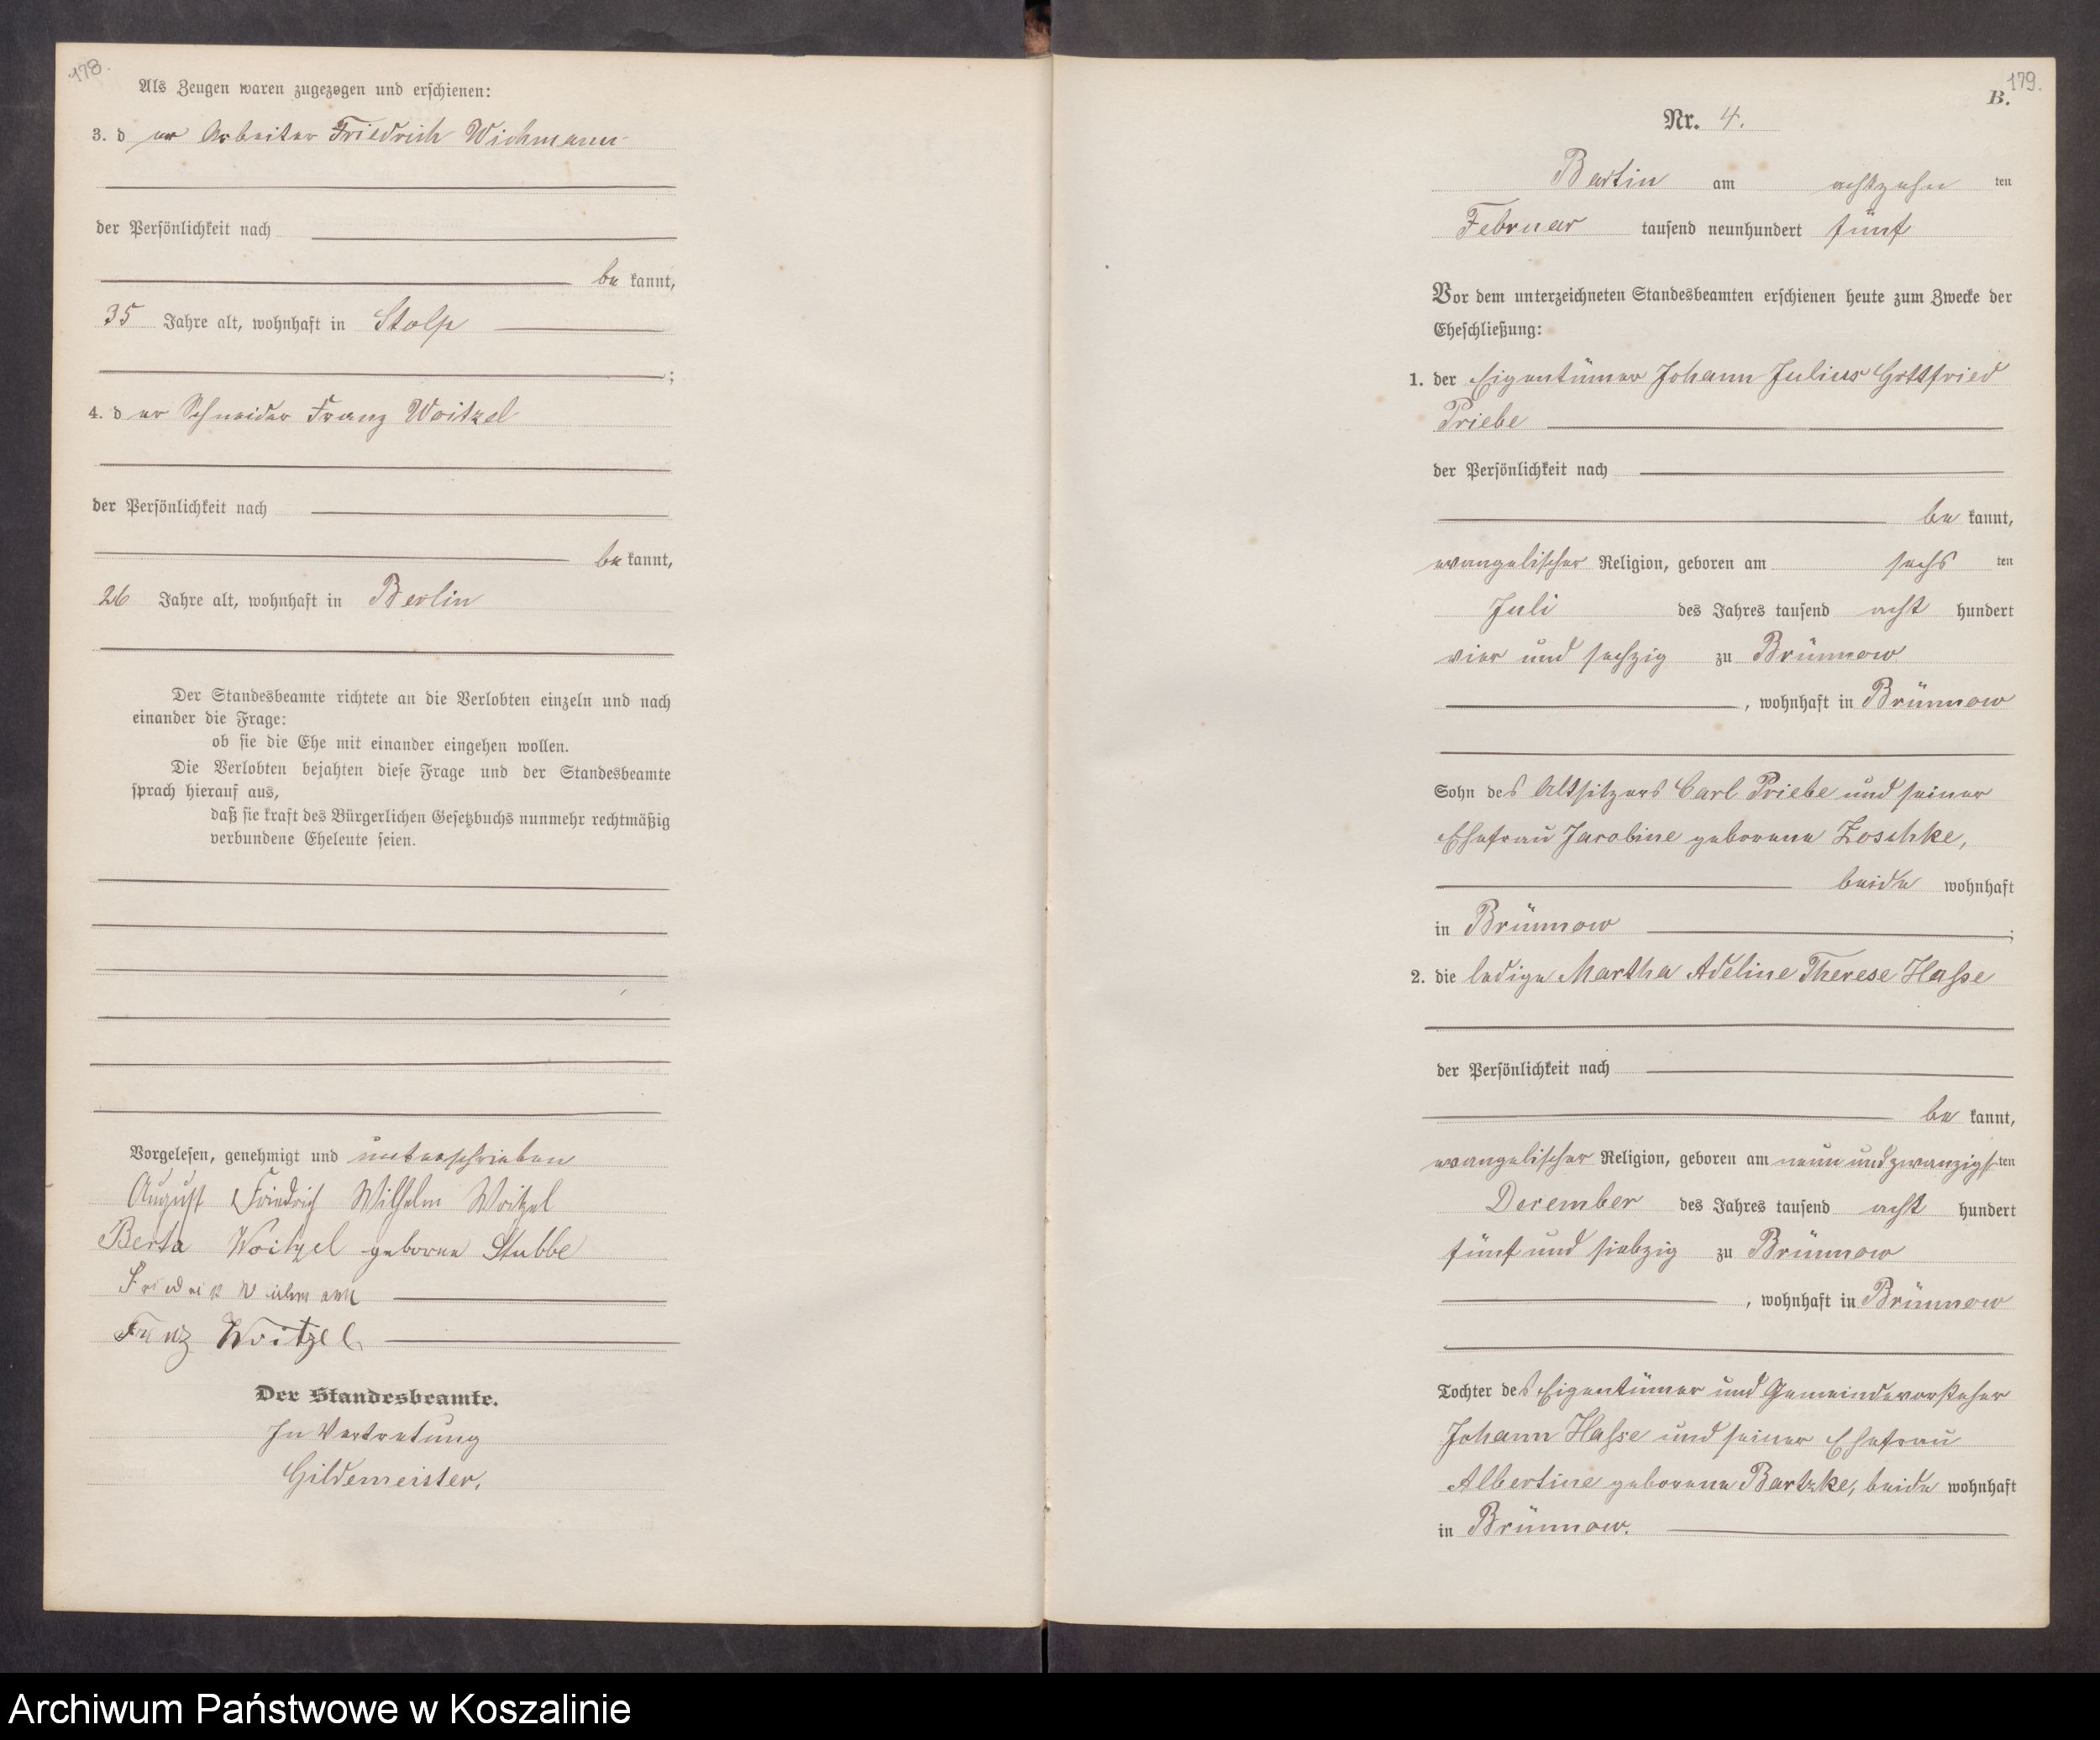 178.
Als Zeugen waren zugezogen und erschienen:
3. d er Arbeiter Friedrich Wichmann
der Persönlichkeit nach
be kannt,
35 Jahre alt, wohnhaft in Stolp
;
4. d er Schneider Franz Woitzel
der Persönlichkeit nach
be kannt,
26 Jahre alt, wohnhaft in Berlin
Der Standesbeamte richtete an die Verlobten einzeln und nach
einander die Frage:
ob sie die Ehe mit einander eingehen wollen.
Die Verlobten bejahten diese Frage und der Standesbeamte
sprach hierauf aus,
daß sie kraft des Bürgerlichen Gesetzbuchs nunmehr rechtmäßig
verbundene Eheleute seien.
Vorgelesen, genehmigt und unterschrieben
August Friedrich Wilhelm Woitzel
Berta Woitzel geborene Stubbe
Friedrich Wichmann
Franz Woitzel
Der Standesbeamte.
In Vertretung
Gildemeister.
179.
B.
Nr. 4.
Bartin am achtzehn ten
Februar tausend neunhundert fünf
Vor dem unterzeichneten Standesbeamten erschienen heute zum Zwecke der
Eheschließung:
1. der Eigentümer Johann Julius Gottfried
Priebe
der Persönlichkeit nach
be kannt,
evangelischer Religion, geboren am sechs ten
Juli des Jahres tausend acht hundert
vier und sechzig zu Brünnow
, wohnhaft in Brünnow
Sohn des Altsitzers Carl Priebe und seiner
Ehefrau Jacobine geborene Zoschke,
beide wohnhaft
in Brünnow ;
2. die ledige Martha Adeline Therese Hasse
der Persönlichkeit nach
be kannt,
evangelischer Religion, geboren am neun und zwanzigsten
December des Jahres tausend acht hundert
fünf und siebzig zu Brünnow
, wohnhaft in Brünnow
Tochter des Eigentümer und Gemeindevorsteher
Johann Hasse und seiner Ehefrau
Albertine geborene Bartzke, beide wohnhaft
in Brünnow.
Archiwum Państwowe w Koszalinie